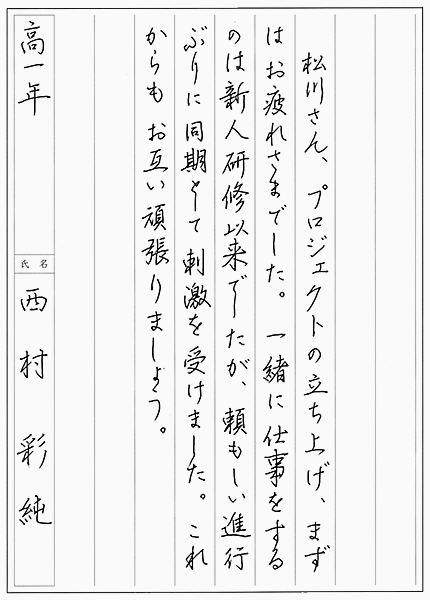 松川さん、プロジェクトの立ち上げ、まず
はお疲れさまでした。一緒に仕事をする
のは新人研修以来でしたが、頼もしい進行
ぶりに同期として刺激を受けました。これ
からもお互い頑張りましょう。
高一年
氏名
西村彩純